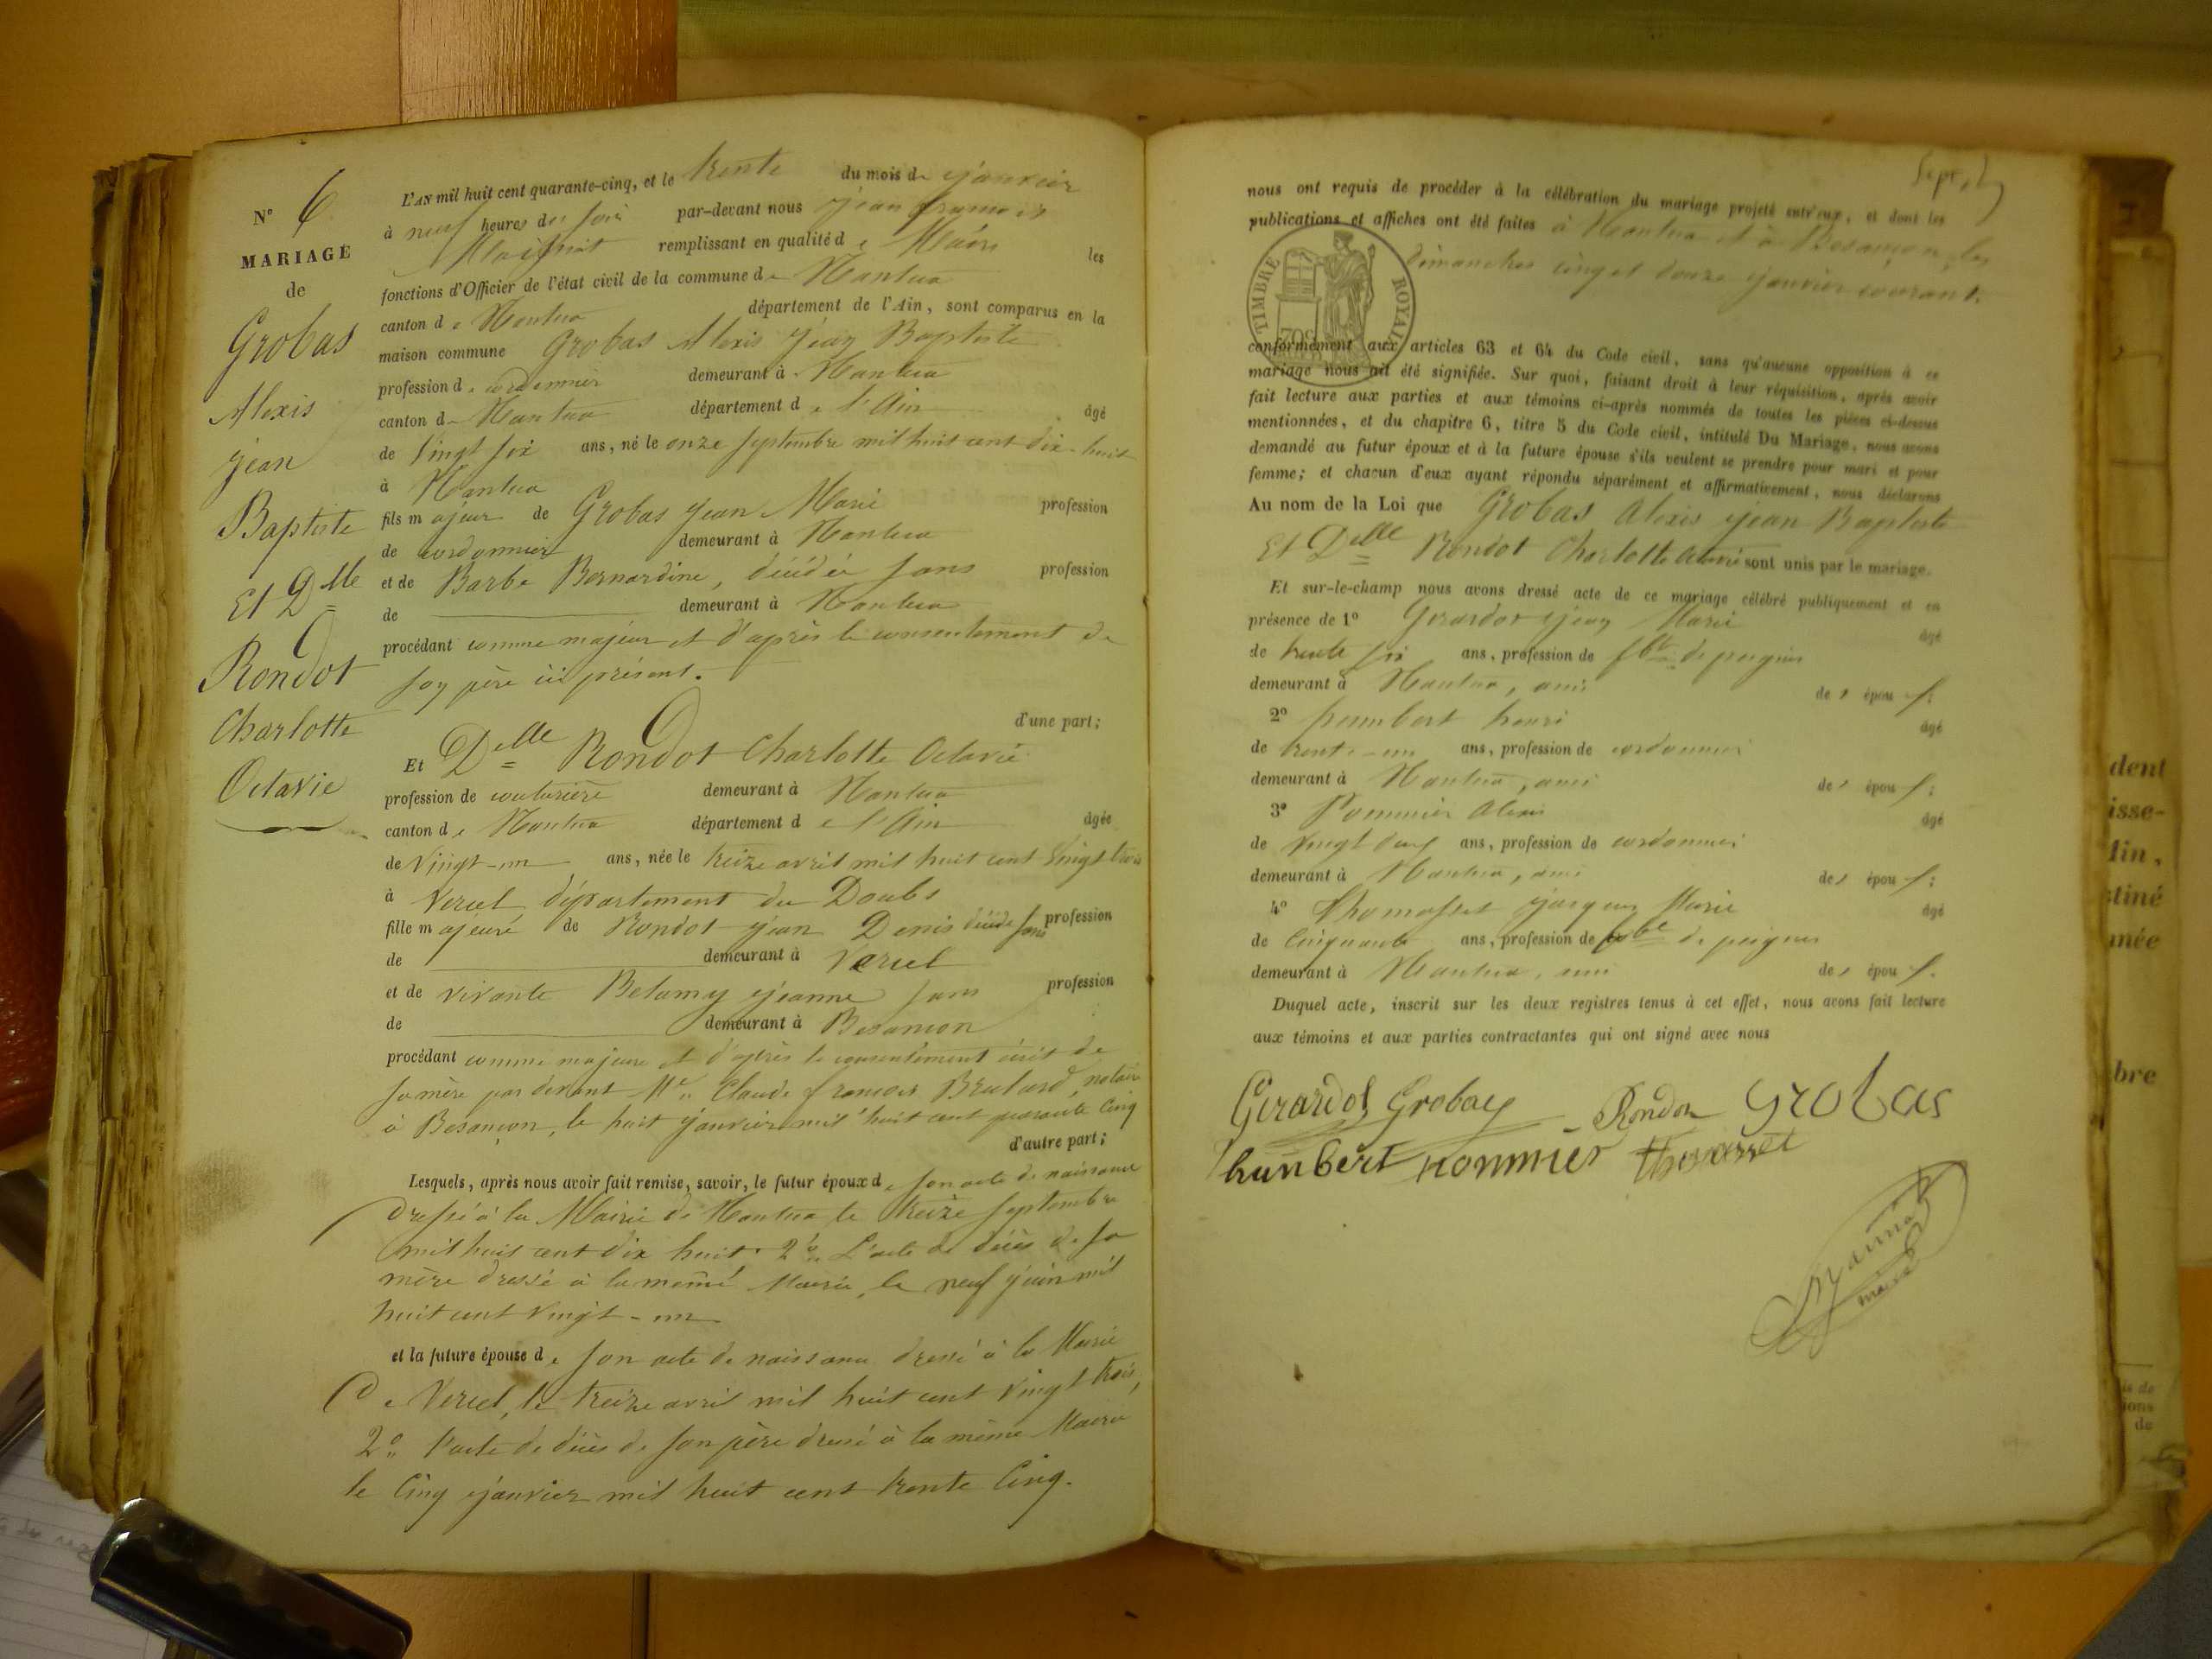 N° 6
MARIAGE
de
Grobas
Alexis
jean
Baptiste
Et Dlle
Rondot
Charlotte
Octavie
L'AN mil huit cent quarante-cinq, et le trente du mois de janvier
à neuf heures des soir par-devant nous jean françois
remplissant en qualité de Maire les
fonctions d'Officier de l'état civil de la commune de Nantua
canton de Nantua département de l'Ain, sont comparus en la
maison commune Grobas Alexis jean Baptiste
profession de cordonnier demeurant à Nantua
canton de Nantua département de l'Ain âgé
de vingt six ans, né le onze septembre mil huit cent dix-huit
à Nantua
fils majeur de Grobas jean Marie profession
de cordonnier demeurant à Nantua
et de Barbe Bernardine, décédée sans profession
de demeurant à Nantua
procédant comme majeur et d'après le consentement de
son père ici présent.
d'une part;
Et Delle Rondot Charlotte Octavie
profession de couturière demeurant à Nantua
canton de Nantua département de l'Ain âgée
de vingt-un ans, née le treize avril mil huit cent vingt trois
à Vercel département du Doubs
fille majeure de Rondot jean Denis décédé sans profession
de demeurant à Vercel
et de vivante Belamy jeanne sans profession
de demeurant à Besançon
procédant comme majeure et d'après le consentement écrit de
sa mère par devant Me Claude françois Brulard, notaire
à Besançon, le huit janvier mil huit cent quarante cinq
d'autre part;
Lesquels, après nous avoir fait remise, savoir, le futur époux de son acte de naissance
dressé à la Mairie de Nantua le treize septembre
mil huit cent dix huit. 2° L'acte de décès de sa
mère dressé à la même Mairie, le neuf juin mil
huit cent vingt-un
et la future épouse de son acte de naissance dressé à la Mairie
de Vercel, le treize avril mil huit cent vingt trois,
2° l'acte de décès de son père dressé à la même Mairie
le cinq janvier mil huit cent trente cinq.
sept
nous ont requis de procéder à la célébration du mariage projeté entr'eux, et dont les
publications et affiches ont été faites à Nantua et à Besançon, les
dimanches cinq et douze janvier courant.
TIMBRE ROYAL
70c
conformément aux articles 63 et 64 du Code civil, sans qu'aucune opposition à ce
mariage nous ait été signifiée. Sur quoi, faisant droit à leur réquisition, après avoir
fait lecture aux parties et aux témoins ci-après nommés de toutes les pièces ci-dessus
mentionnées, et du chapitre 6, titre 5 du Code civil, intitulé Du Mariage, nous avons
demandé au futur époux et à la future épouse s'ils veulent se prendre pour mari et pour
femme; et chacun d'eux ayant répondu séparément et affirmativement, nous déclarons
Au nom de la Loi que Grobas Alexis jean Baptiste
Et Delle Rondot Charlotte Octavie sont unis par le mariage.
Et sur-le-champ nous avons dressé acte de ce mariage célébré publiquement et en
présence de 1° Girardot jean Marie âgé
de trente six ans, profession de fbt de peignes
demeurant à Nantua, ami des époux;
2° humbert henri âgé
de trente-un ans, profession de cordonnier
demeurant à Nantua, ami des époux;
3° Pommier Alexis âgé
de ans, profession de cordonnier
demeurant à Nantua, ami des époux;
4° Thomasset jacques Marie âgé
de cinquante ans, profession de fbt de peignes
demeurant à Nantua, ami des époux.
Duquel acte, inscrit sur les deux registres tenus à cet effet, nous avons fait lecture
aux témoins et aux parties contractantes qui ont signé avec nous
Girardot Grobas Rondot Grobas
humbert Pommier thomasset
maire
dent
isse-
Ain,
stiné
mée
bre